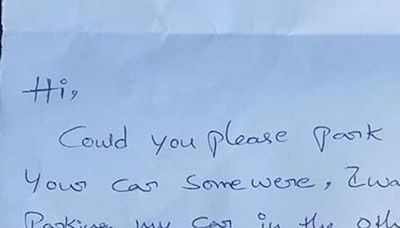 Hi,
Could you please park
your car somewere, I wa
Parking my car in the oth